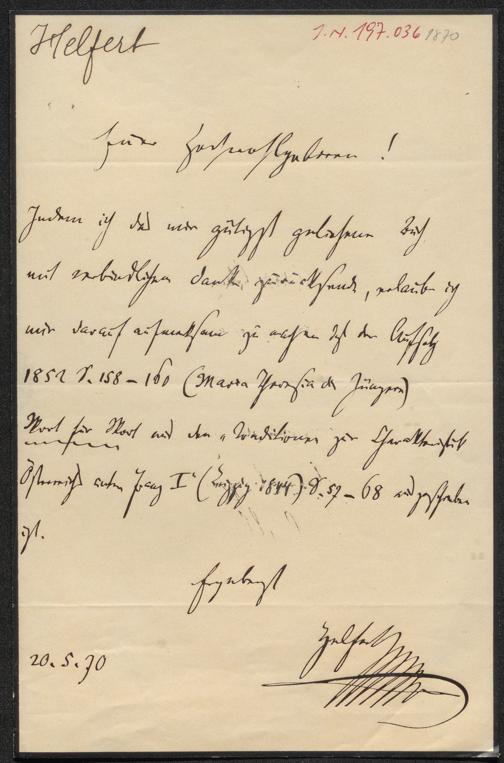 Helfert
I.N. 197.036 1870
Euer Hochwohlgeboren!
Indem ich das mir gütigst geliehene Buch
mit verbindlichem Danke zurücksende, erlaube ich
mir darauf aufmerksam zu machen daß der Aufsatz
1852 S. 158 – 160 (Maria Theresia die Jüngere)
Wort für Wort aus den „Traditionen zur Charakteristik
Österreichs unter Franz I“ (Leipzig 1844) S. 59 – 68 ausgeschrieben
ist.
Ergebenst
Helfert
20. 5. 70